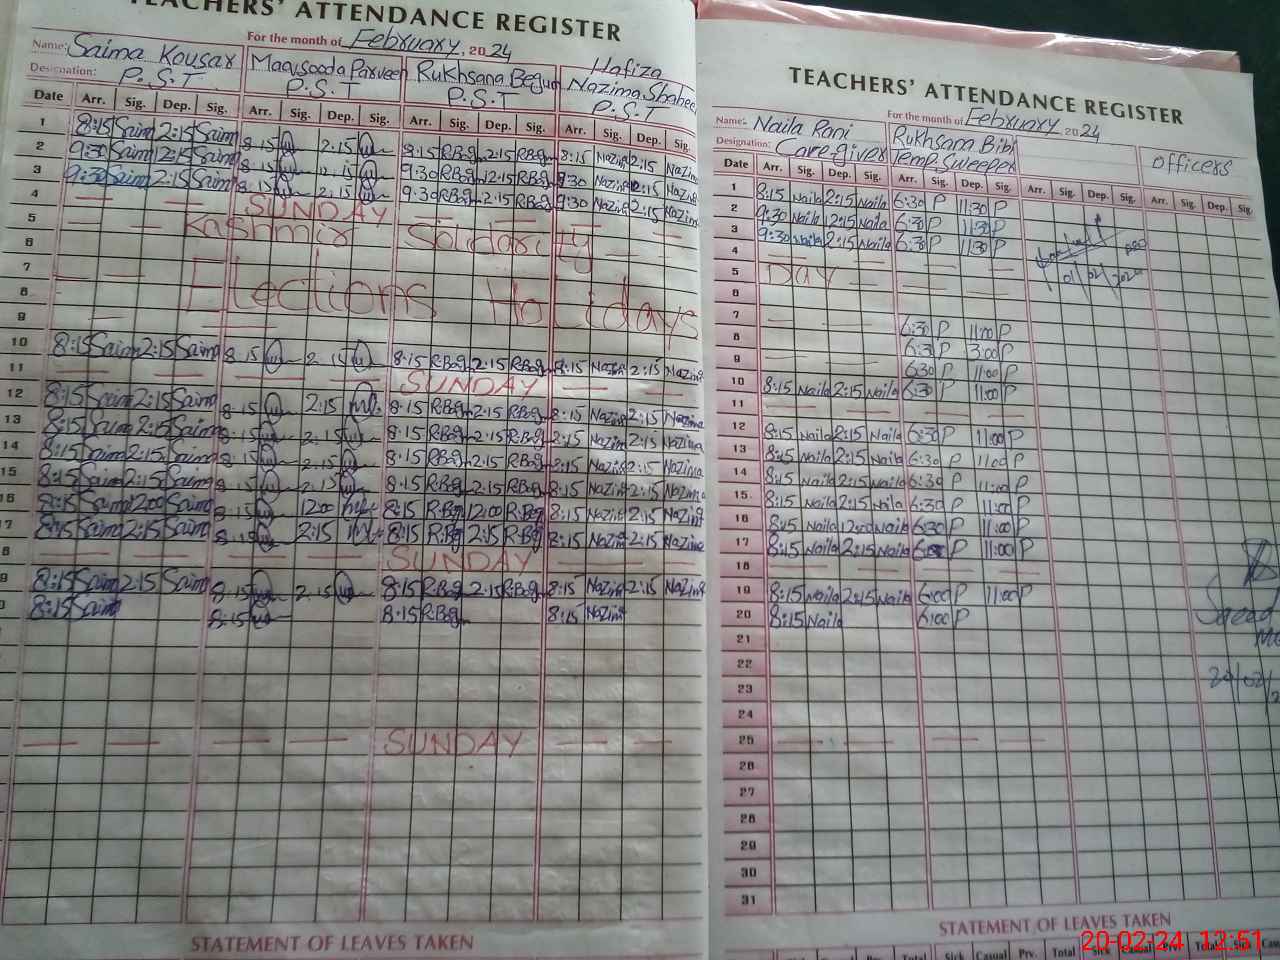 TEACHERS' ATTENDANCE REGISTER
For the month of February, 2024
Name: Saima Kousar Maqsooda Parveen Rukhsana Begum Hafiza Nazima Shahee
Designation: P.S.T P.S.T P.S.T P.S.T
Date Arr. Sig. Dep. Sig. Arr. Sig. Dep. Sig. Arr. Sig. Dep. Sig. Arr. Sig. Dep. Sig.
1 8:15 Saim 2:15 Saim 8:15 2:15 8:15 R.Beg 2:15 R.Beg 8:15 Nazim 2:15 Nazim
2 9:30 Saim 12:15 Saim 8:15 12:15 9:30 R.Beg 12:15 R.Beg 9:30 Nazim 12:15 Nazim
3 9:30 Saim 2:15 Saim 8:15 2:15 9:30 R.Beg 2:15 R.Beg 9:30 Nazim 2:15 Nazim
4 SUNDAY
5 Kashmir Solidarity
6
7
8 Elections Holidays
9
10 8:15 Saim 2:15 Saim 8:15 2:15 8:15 R.Beg 2:15 R.Beg 8:15 Nazim 2:15 Nazim
11 SUNDAY
12 8:15 Saim 2:15 Saim 8:15 2:15 8:15 R.Beg 2:15 R.Beg 8:15 Nazim 2:15 Nazima
13 8:15 Saim 2:15 Saim 8:15 2:15 8:15 R.Beg 2:15 R.Beg 8:15 Nazim 2:15 Nazima
14 8:15 Saim 2:15 Saim 8:15 2:15 8:15 R.Beg 2:15 R.Beg 8:15 Nazim 2:15 Nazima
15 8:15 Saim 2:15 Saim 8:15 2:15 8:15 R.Beg 2:15 R.Beg 8:15 Nazim 2:15 Nazima
16 8:15 Saim 12:00 Saim 8:15 12:00 8:15 R.Beg 12:00 R.Beg 8:15 Nazim 2:15 Nazim
17 8:15 Saim 2:15 Saim 8:15 2:15 8:15 R.Beg 2:15 R.Beg 8:15 Nazim 2:15 Nazima
8 SUNDAY
9 8:15 Saim 2:15 Saim 8:15 2:15 8:15 R.Beg 2:15 R.Beg 8:15 Nazim 2:15 Nazim
8:15 Saim 8:15 8:15 R.Beg 8:15 Nazim
21
22
23
24
25 SUNDAY
26
27
28
29
30
31
STATEMENT OF LEAVES TAKEN
TEACHERS' ATTENDANCE REGISTER
For the month of February 2024
Name: Naila Rani Rukhsana Bibi
Designation: Caregiver Temp. Sweeper officers
Date Arr. Sig. Dep. Sig. Arr. Sig. Dep. Sig. Arr. Sig. Dep. Sig. Arr. Sig. Dep. Sig.
1 8:15 Naila 2:15 Naila 6:30 P 11:30 P
2 9:30 Naila 12:15 Naila 6:30 P 11:30 P
3 9:30 Naila 2:15 Naila 6:30 P 11:30 P
4
5 DAY
6
7 6:30 P 11:00 P
8 6:30 P 3:00 P
9 6:30 P 11:00 P
10 8:15 Naila 2:15 Naila 6:30 P 11:00 P
11
12 8:15 Naila 2:15 Naila 6:30 P 11:00 P
13 8:15 Naila 2:15 Naila 6:30 P 11:00 P
14 8:15 Naila 2:15 Naila 6:30 P 11:00 P
15 8:15 Naila 2:15 Naila 6:30 P 11:00 P
16 8:15 Naila 12:00 Naila 6:30 P 11:00 P
17 8:15 Naila 2:15 Naila P 11:00 P
18
19 8:15 Naila 2:15 Naila 6:00 P 11:00 P
20 8:15 Naila 6:00 P
21
22
23
24
25
26
27
28
29
30
31
STATEMENT OF LEAVES TAKEN
Sick Casual Prv. Total Sick Casual Prv. Total
20-02-24 12:51